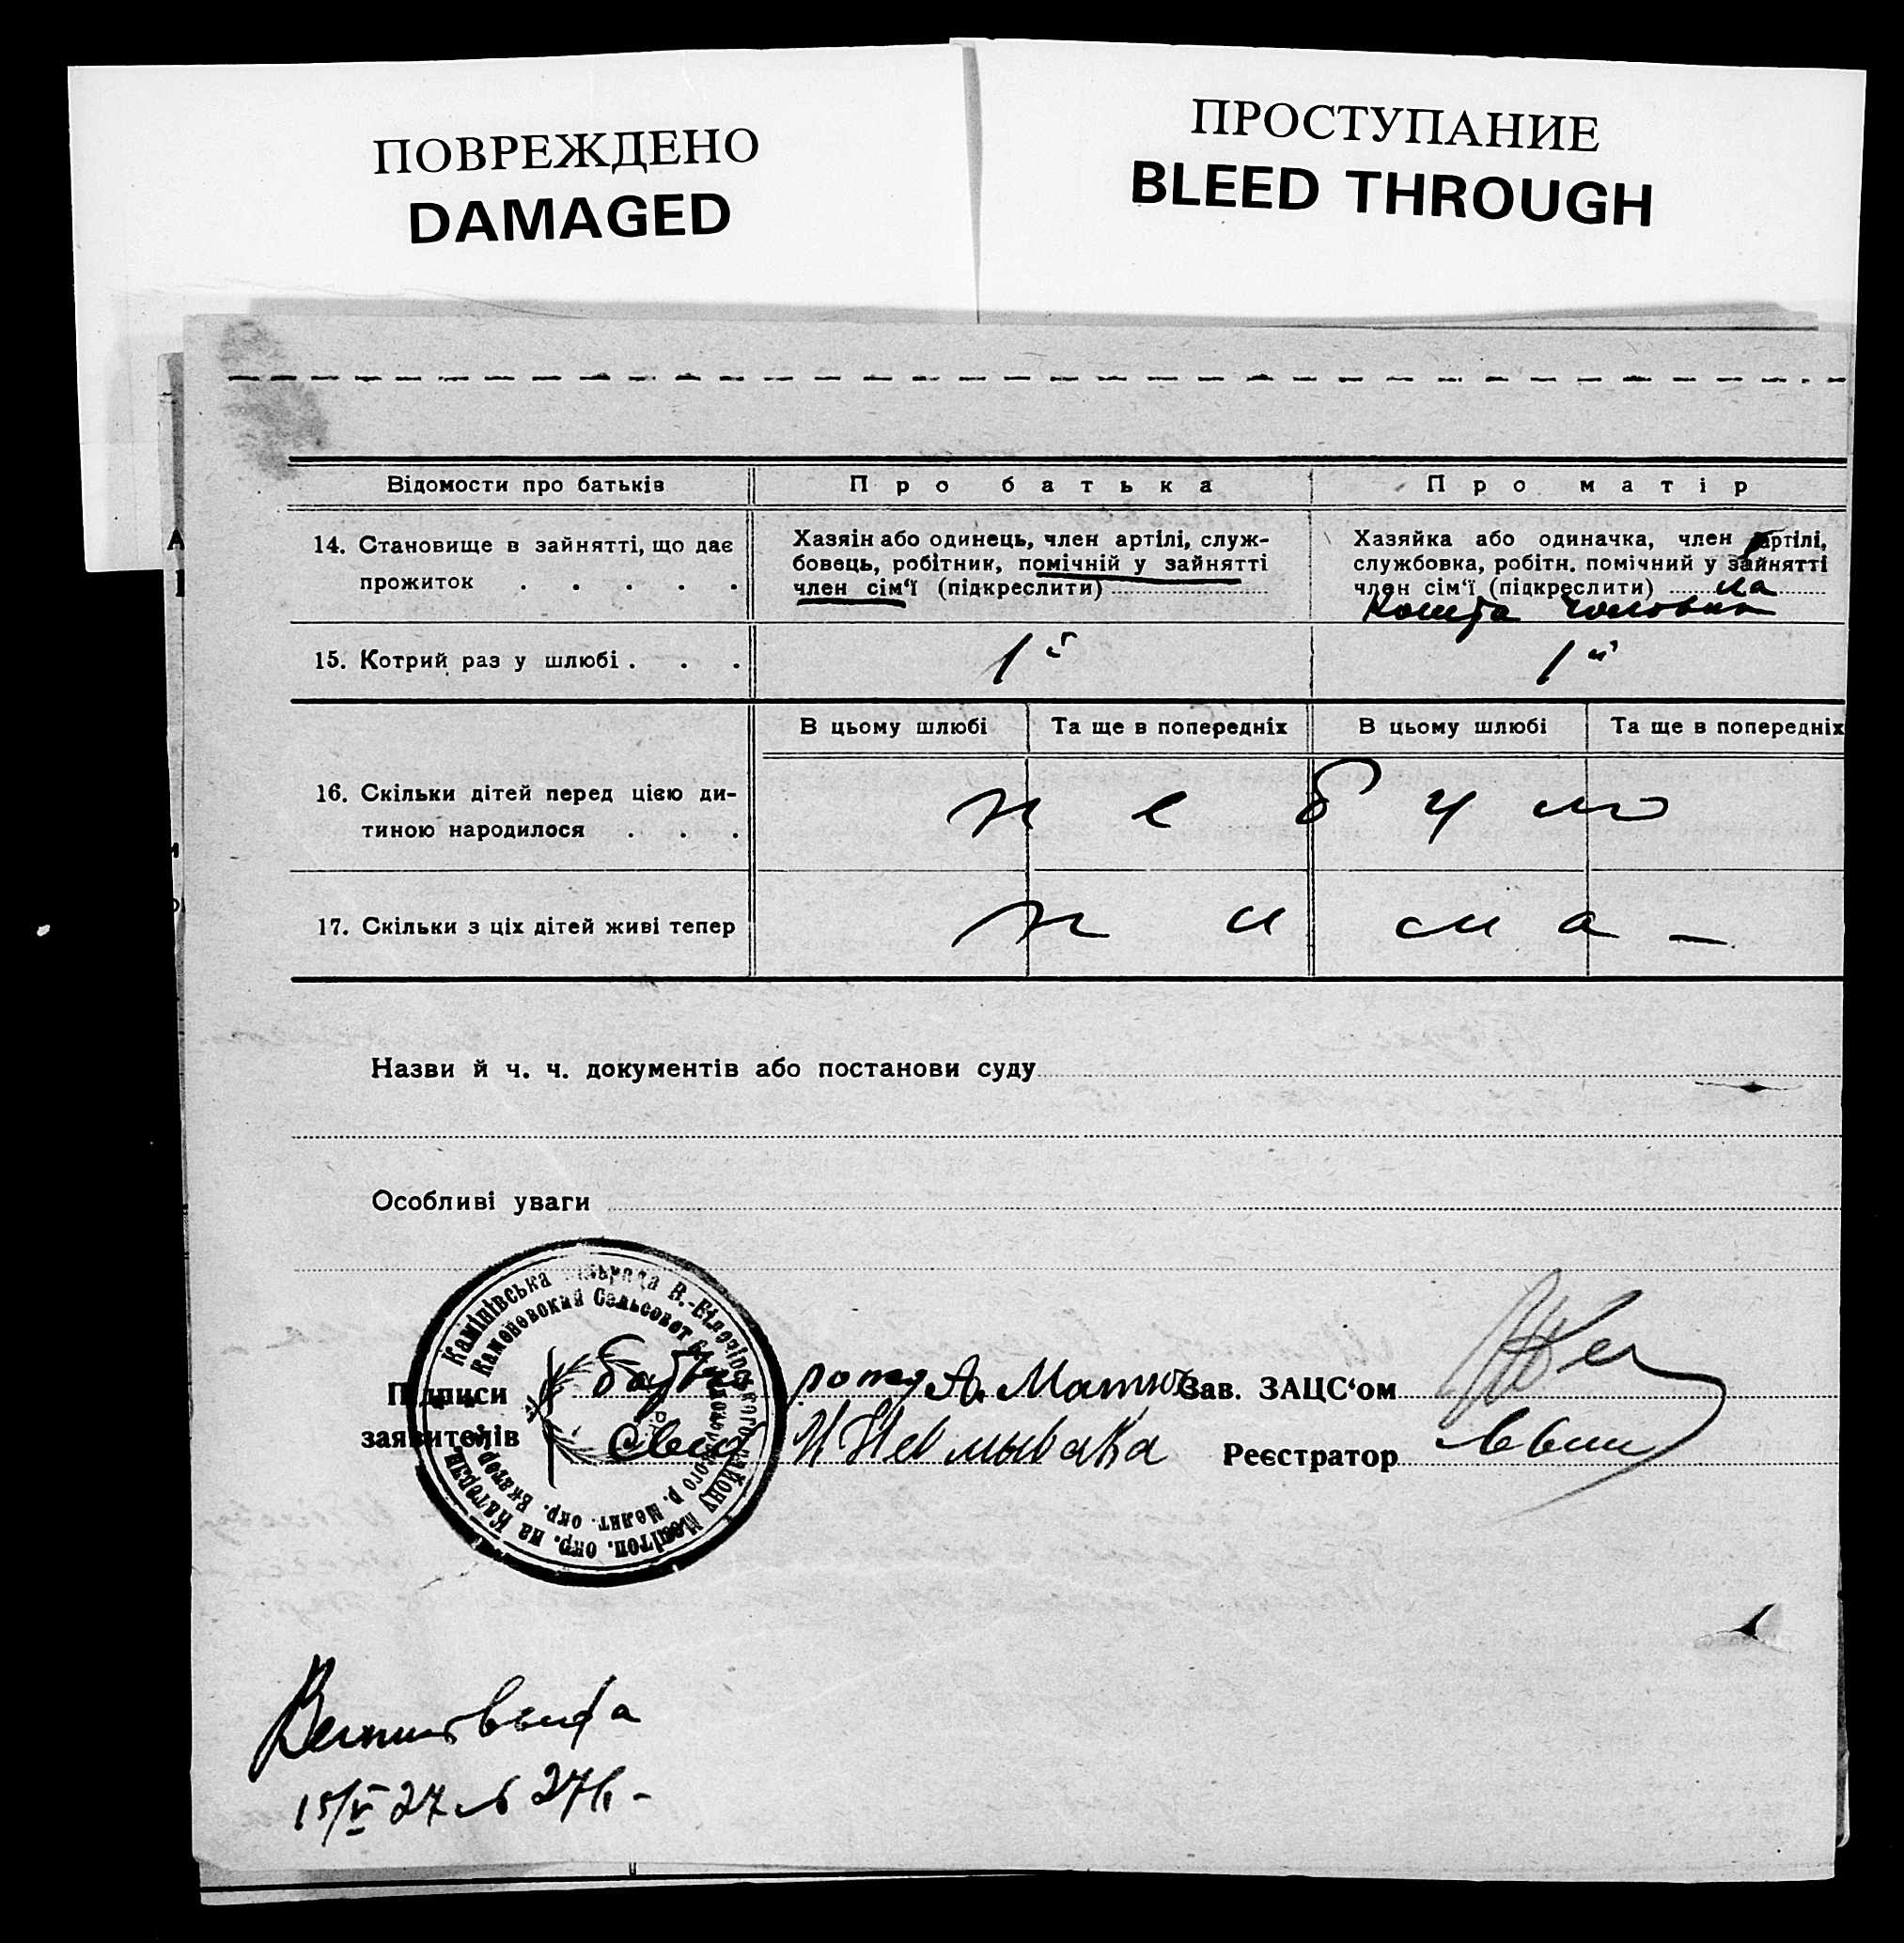 ПОВРЕЖДЕНО
DAMAGED
ПРОСТУПАНИЕ
BLEED THROUGH
Відомости про батьків
Про батька
Про матір
14. Становище в зайнятті, що дає
прожиток . . . .
Хазяін або одинець, член артілі, служ-
бовець, робітник, помічній у зайнятті
член сім'ї (підкреслити)
Хазяйка або одиначка, член артілі,
службовка, робітн. помічний у зайнятті
член сім'ї (підкреслити) на
кошта чоловика
15. Котрий раз у шлюбі . . .
1й
1й
В цьому шлюбі
Та ще в попередніх
В цьому шлюбі
Та ще в попередніх
16. Скільки дітей перед цією ди-
тиною народилося . . .
не було
17. Скільки з ціх дітей живі тепер
нима —
Назви й ч. ч. документів або постанови суду
Особливі уваги
Камінівська сільрада В.-Білозірського району Мелітоп. окр. на Катерин
Каменовский Сельсовет р. Мелит. окр. Екатер
Підписи
заявителів
А. Матюх
И Невмывака
Зав. ЗАЦС'ом
Реєстратор
15/V 27